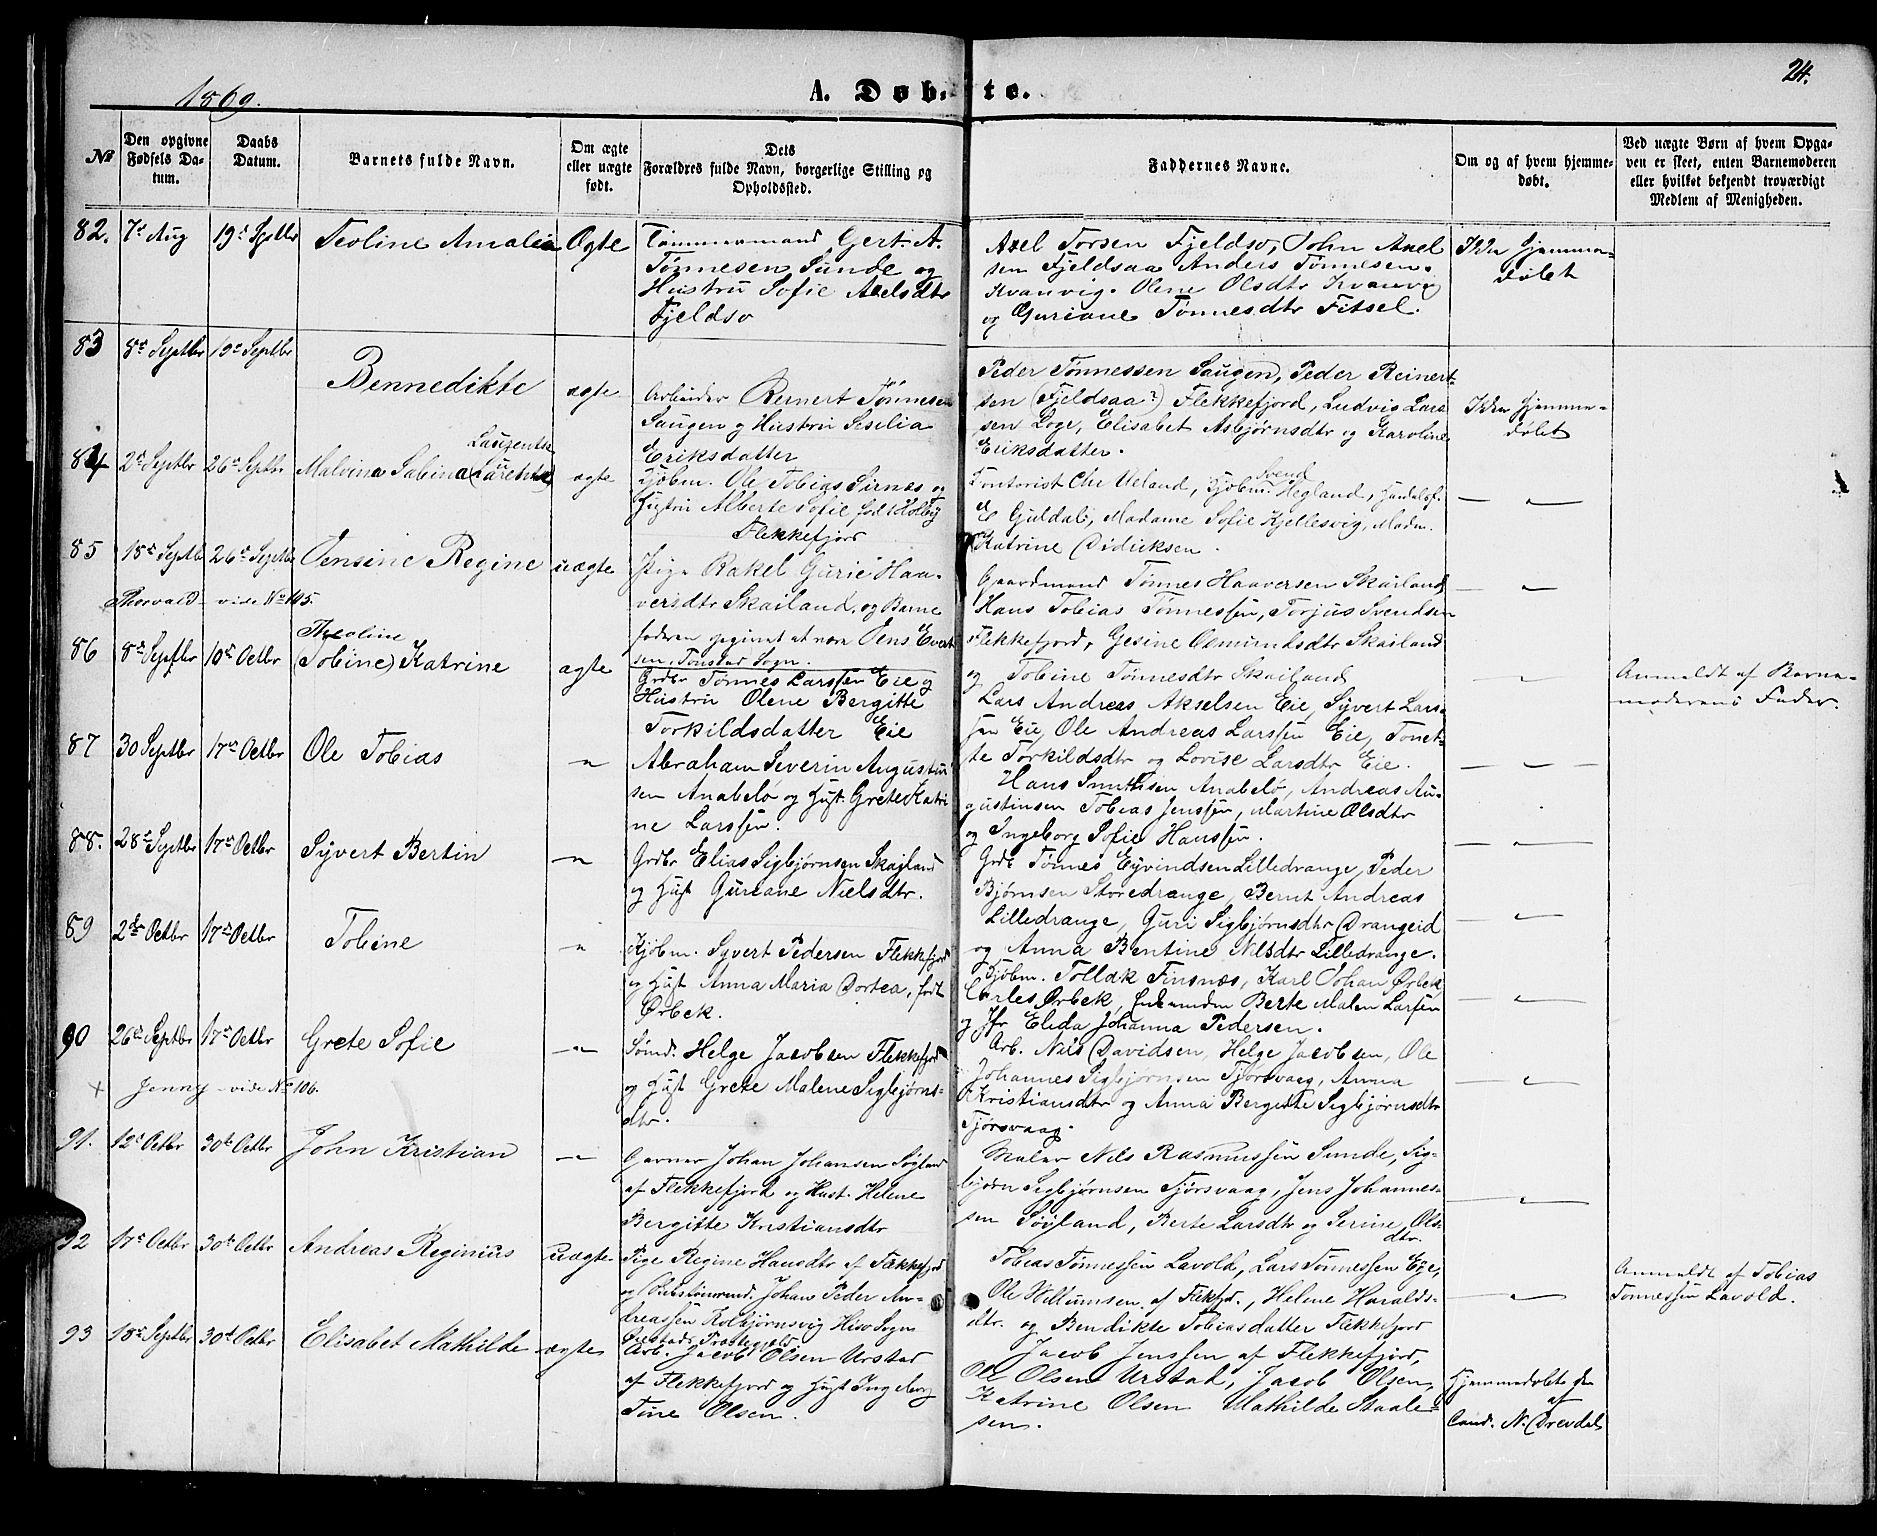 1869.
A. Døbte.
24.
№
Den opgivne Fødsels Da-tum.
Daabs Datum.
Barnets fulde Navn.
Om ægte eller uægte født.
Dets Forældres fulde Navn, borgerlige Stilling og Opholdssted.
Faddernes Navne.
Om og af hvem hjemme-døbt.
Ved uægte Børn af hvem Opga-ven er skeet, enten Barnemoderen eller hvilket bekjendt troværdigt Medlem af Menigheden.
82. 7de Aug 19de Septbr Teoline Amalia Ægte
Tømmermand Gert A.
Tønnesen Sunde og
Hustru Sofie Axelsdtr
Fjeldsø
Axel Torsen Fjeldsø, John Axel
sen Fjeldsaa Anders Tønnesen
Kvanvig. Olene Olsdtr Kvanvig
og Guriane Tønnesdtr Fitsel.
Ikke hjemme-
døbt
83 8de Septbr 19de Septbr Bennedikte ægte
Arbeider Bernert Tønnesen
Saugen og Hustru Sesilia
Eriksdatter
Peder Tønnessen Saugen, Peder Reinert-
sen (Fjeldsaa?) Flekkefjord, Ludvig Lars
sen Loge, Elisabet Asbjørnsdtr og Karoline
Eriksdatter.
Ikke hjemme-
døbt
84 2de Septbr 26de Septbr Malvina Sabina ægte
Kjøbm. Ole Tobias Sirnæs og
Hustru Alberte Sofie født Holby
Flekkefjord
Kontorist Chr Ueland, Kjøbm. Svend Hegland,
E Guldal, Madame Sofie Kjellesvig, Madm.
Katrine Didriksen.
— " —
85 15de Septbr 26de Septbr Jensine Regine uægte
Pige Rakel Gurie Haa-
versdtr Skailand, og Barne
faderen opgivet at være Jens Evert
sen, Tonstad Sogn.
Gaardmand Tønnes Haaversen Skailand
Hans Tobias Tønnessen, Torjus Svendsen
Flekkefjord, Gesine Osmundsdtr Skailand
og Tobine Tønnesdtr Skailand
— " —
Anmeldt af Barne-
moderens Fader.
Thorvald - vide No 145.
86 8de Septbr 10de Octbr Theoline (Tobine) Katrine ægte
Grdbr Tønnes Larssen Eie og
Hustru Olene Bergitte
Torkildsdatter Eie
Lars Andreas Akselsen Eie, Syvert Lars-
sen Eie, Ole Andreas Larssen Eie, Tonet-
te Torkildsdtr og Lovise Larsdtr Eie.
— " —
87 30 Septbr 17de Octbr Ole Tobias — " —
Abraham Severin Augustin
sen Anabelø og Hust. Grete Katri
ne Larssen.
Hans Anabelø, Andreas Au-
gustinsen Tobias Jenssen, Martine Olsdtr
og Ingeborg Sofie Hanssen.
— " —
88. 28de Septbr 17de Octbr Syvert Bertin — " —
Grdbr Elias Sigbjørnsen Skailand
og Hust Guriane Nielsdtr.
Grdb Tønnes Eyvindsen Lilledrange, Peder
Bjørnsen Storedrange, Bernt Andreas
Lilledrange, Guri Sigbjørnsdtr Drangeid
og Anna Bentine Nilsdtr Lilledrange.
— " —
89 2den Octbr 17de Octbr Tobine "
Kjøbm. Syvert Pedersen Flekkefjord
og Hust Anna Maria Dortea, født
Ørbek.
Kjøbm. Tollak Finsnæs, Karl Johan Ørbek
Carles Ørbek, Berte Malen Larsen
og Jfr Elida Johanna Pedersen.
— " —
90 26de Septbr 17de Octbr Grete Sofie — " —
Sømd. Helge Jacobsen Flekkefjord
og Hust Grete Malene Sigbjørns-
dtr.
Arb. Nils Davidsen, Helge Jacobsen, Ole
Johannes Sigbjørnsen Tjørsvaag, Anna
Kristiansdtr og Anna Bergitte Sigbjørnsdtr
Tjørsvaag.
— " —
+ Jenny - vide No 106.
91. 12de Octbr 30te Octbr John Kristian — " —
Garver Johan Johansen Søyland
af Flekkefjord og Hust. Helene
Bergitte Kristiansdtr
Maler Nils Rasmussen Sunde, Sig-
bjørn Sigbjørnsen Tjørsvaag, Jens Johannes-
sen Søyland, Berte Larsdtr og Serine Ols
dtr.
— " —
92 17de Octbr 30te Octbr Andreas Reginius Uægte
Pige Regine Hansdtr af Flekkefjord
og Johan Peder An-
dreassen Kolbjørnsvig Hisø Sogn
Øiestads Præstegjeld
Tobias Tønnessen Lavold, Lars Tønnessen Eye,
Ole Willumsen af Flekfjd., Helene Haralds-
dtr. og Bendikte Tobiasdatter Flekkefjord
— " —
Anmeldt af Tobias
Tønnessen Lavold.
93 18de Septbr 30te Octbr Elisabet Mathilde ægte
Arb. Jacob Olsen Urstad
af Flekkefjord og Hust Ingeborg
Tine Olsen.
Jacob Jenssen af Flekkefjord,
Ole Olsen Urstad, Jacob Olsen,
Katrine Olsen Mathilde Staale-
sen.
Hjemmedøbt
af
Cand. N. Drevdal